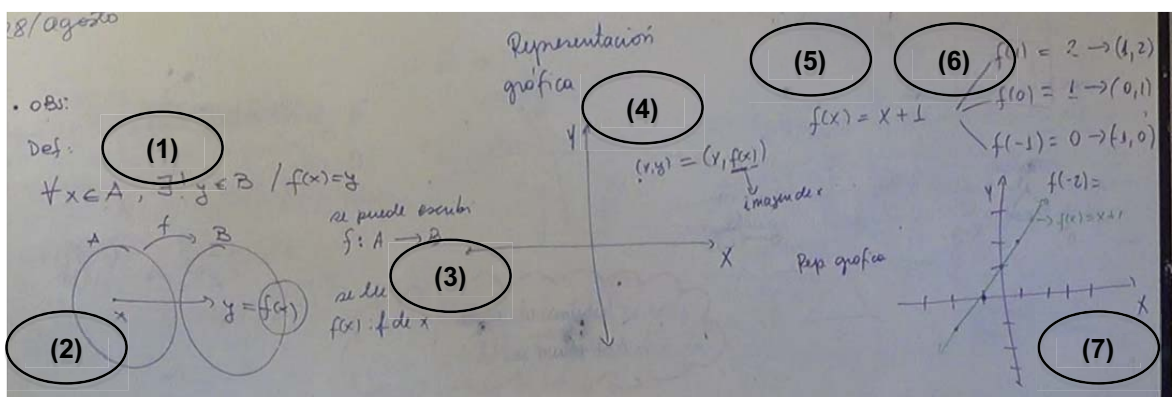 28/agosto
• OBS:
Def:
(1)
∀ x ∈ A , ∃! y ∈ B / f(x)=y
A f B
x y = f(x)
(2)
se puede escribi
f: A → B
(3)
se lee
f(x): f de x
Representación
gráfica
(4)
Y
(x,y) = (x, f(x))
imagen de x
X
(5)
(6)
f(x) = x + 1
f(1) = 2 → (1,2)
f(0) = 1 → (0,1)
f(-1) = 0 → (-1,0)
f(-2) =
Rep grafica
Y
→ f(x)=x+1
X
(7)